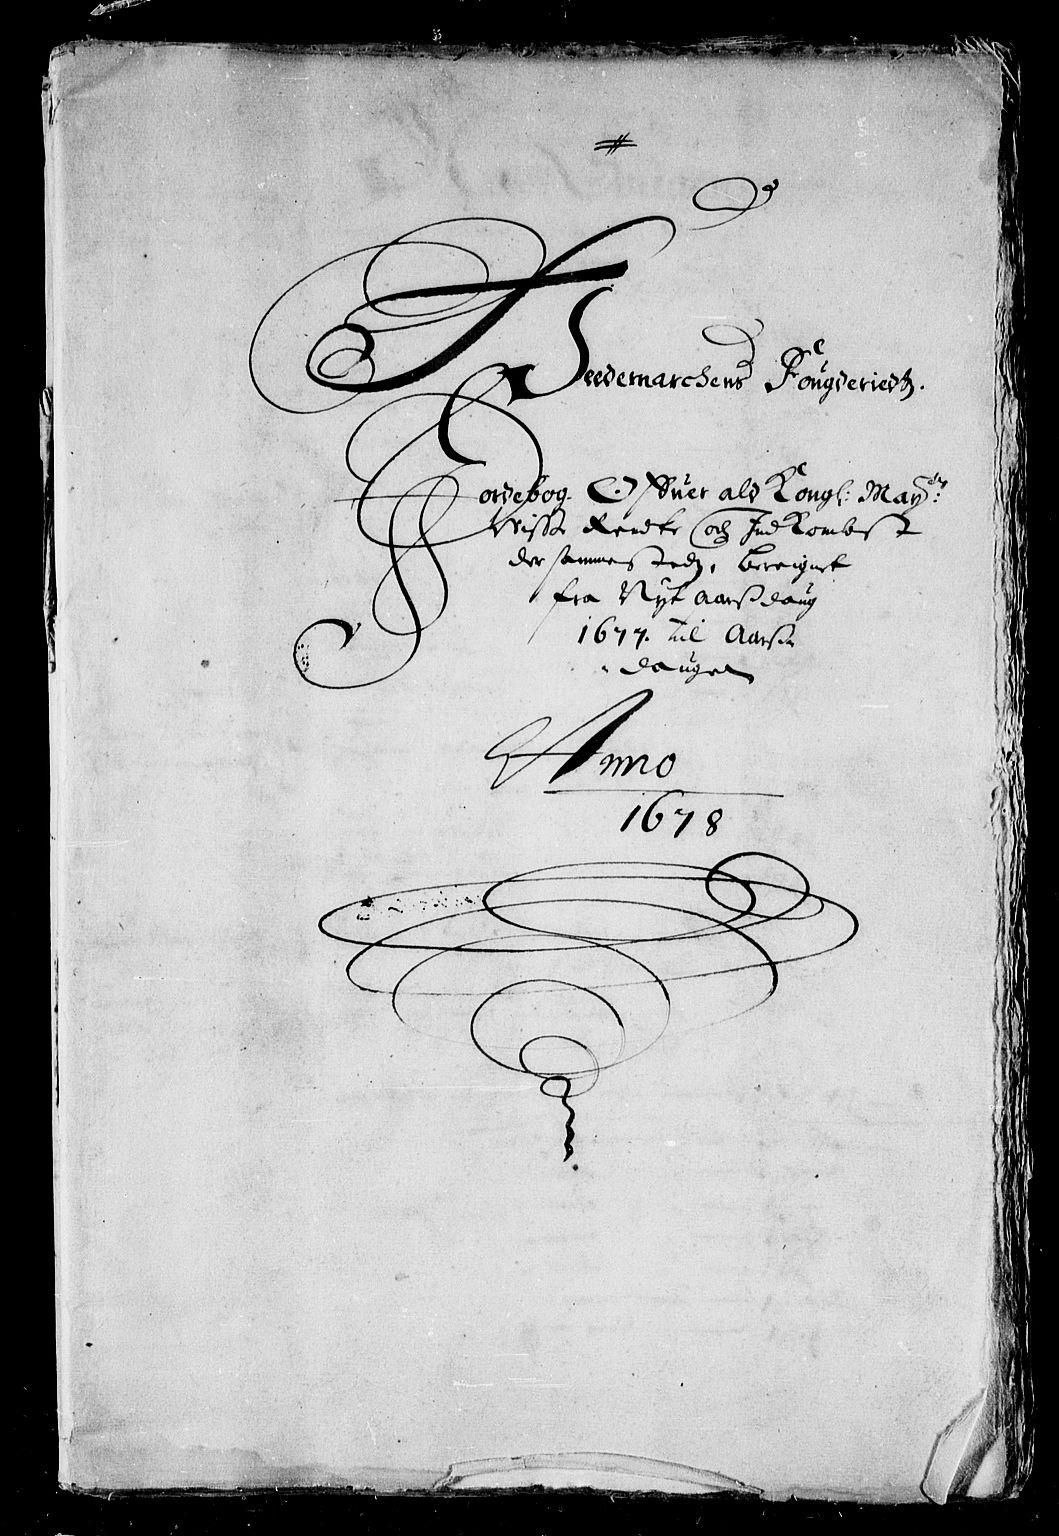 #
Heedemarchens Fougderiedtz.
Jordebog. Offuer ald Kongl: Maytz:
Visse Rendte och Ind Kombst
der sammestedtz, bereignet
fra Nyt Aarsz daug
1677. til Aarsz
daugen
Anno
1678